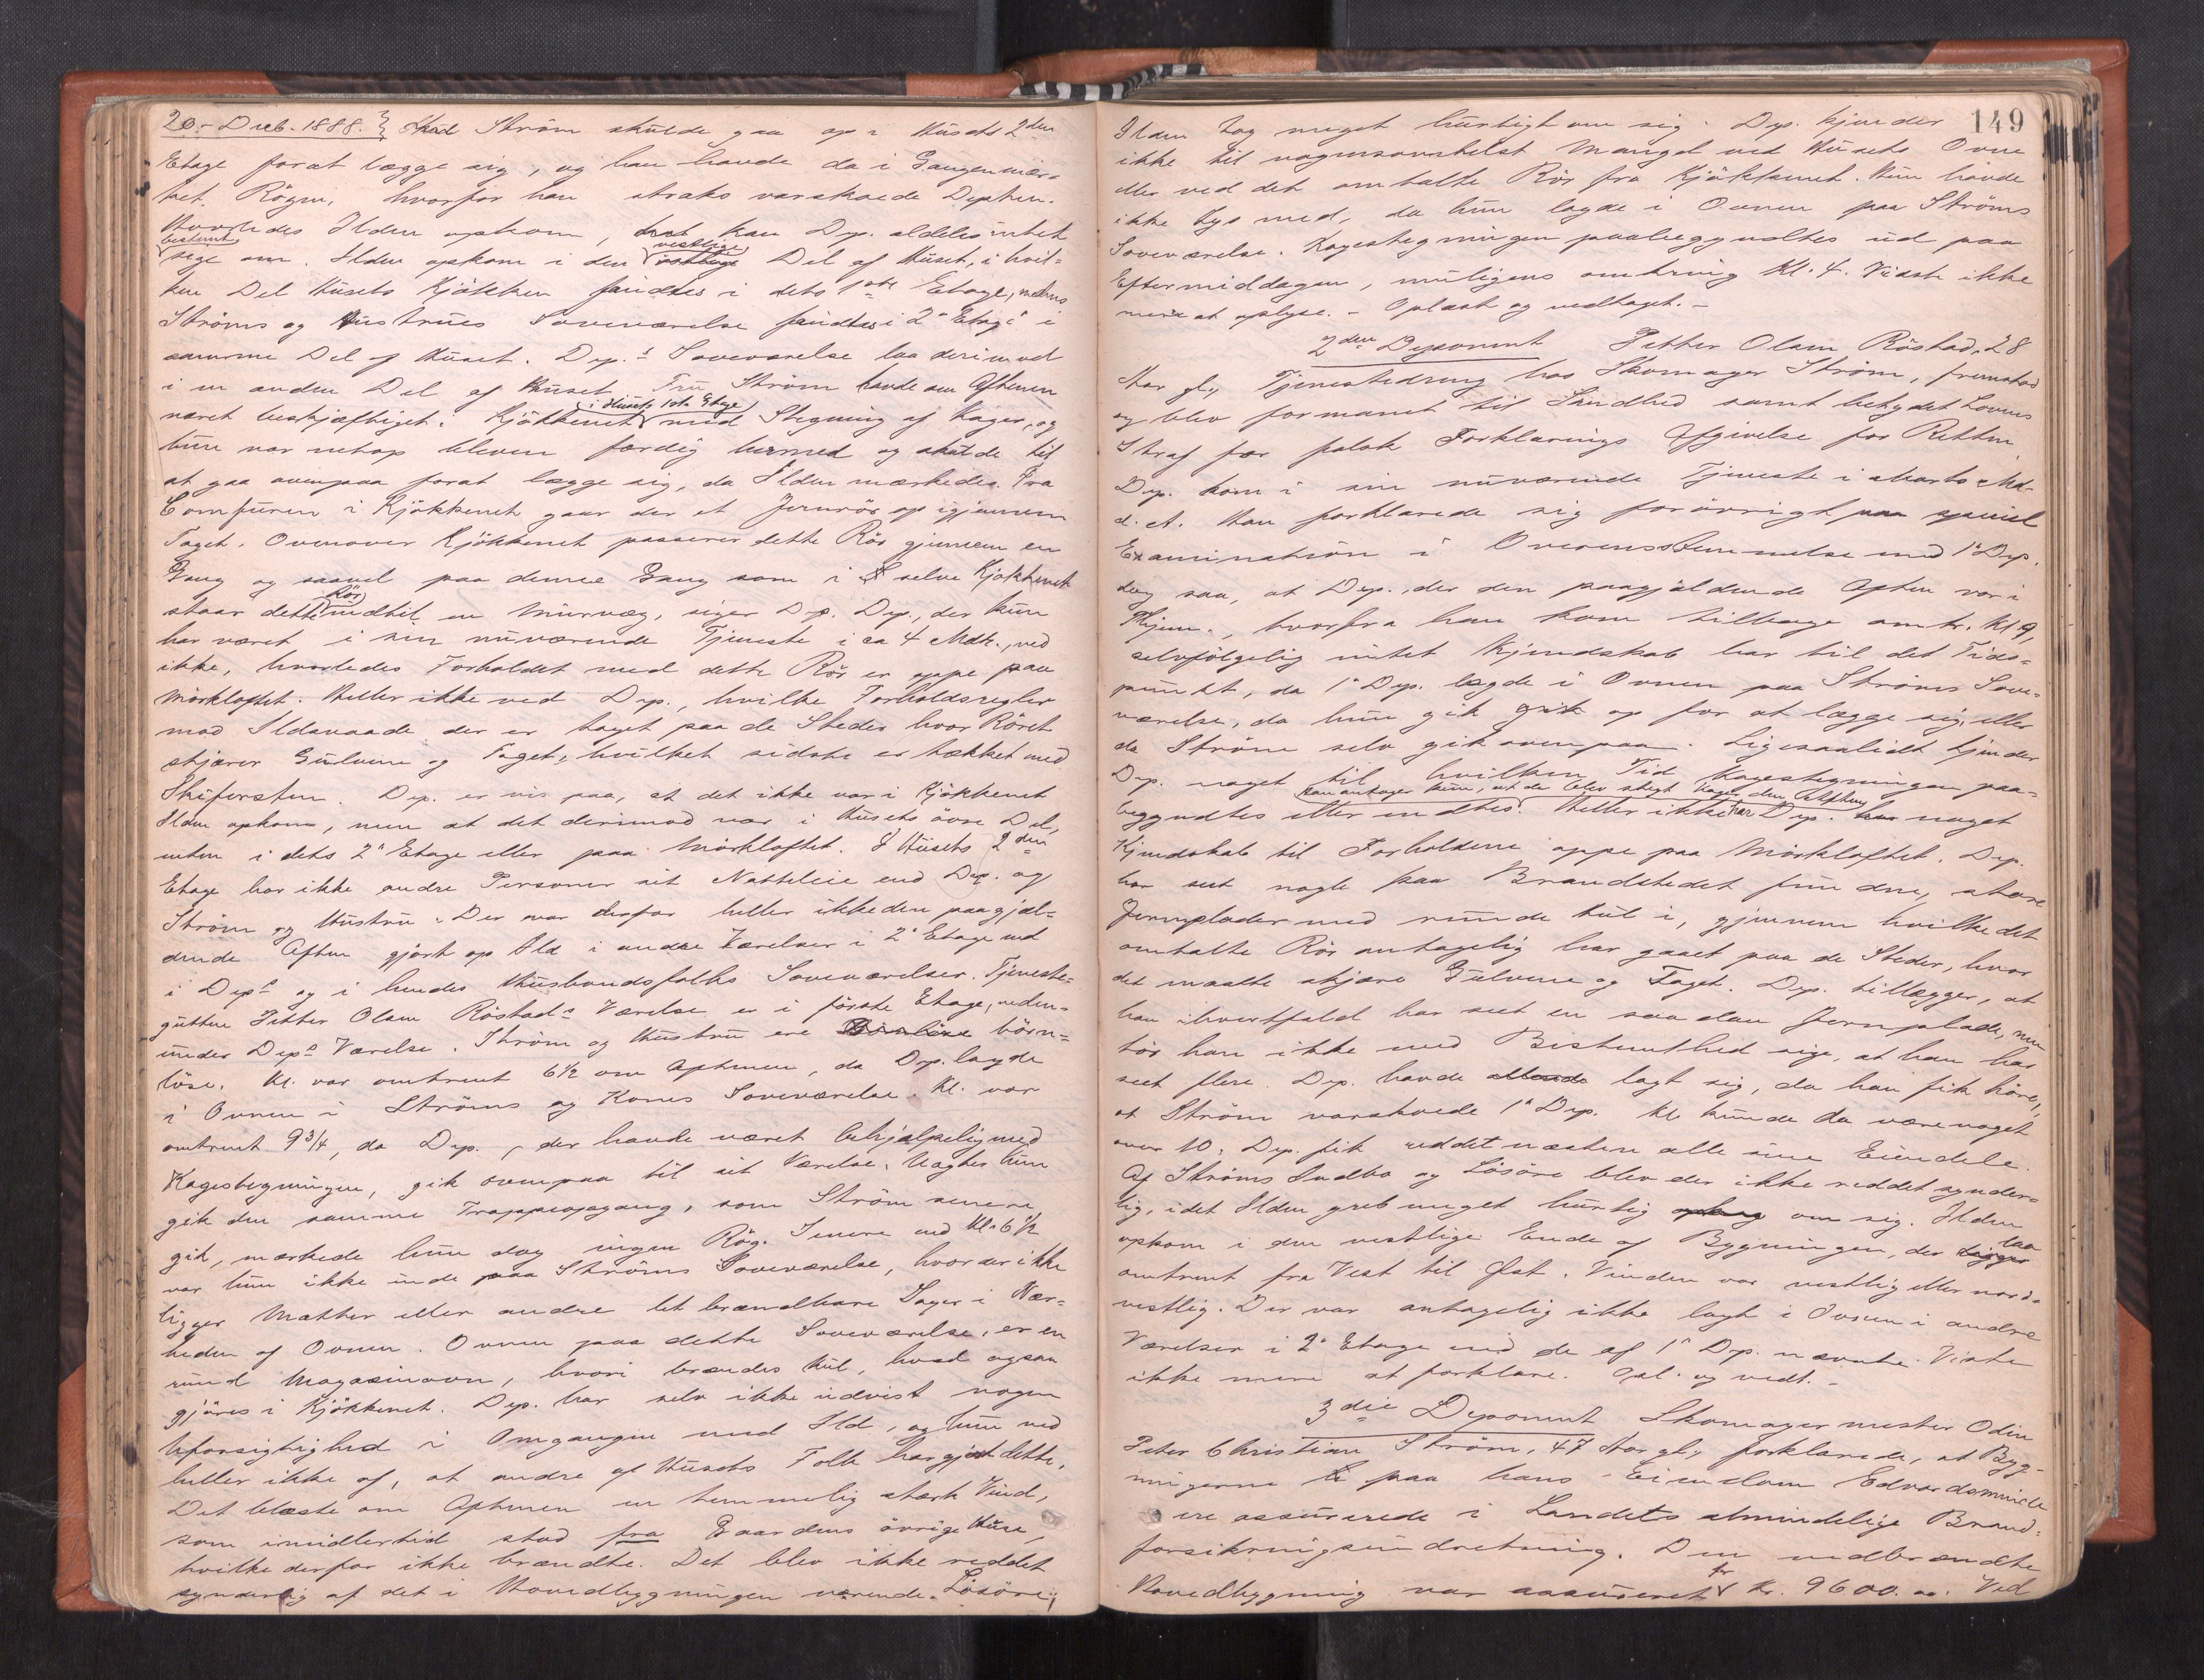 20 - Decb. 1888. Mad Ström skulde gaa op i Husets 2den
Etage forat lægge sig, og han havde da i Gangen mær-
ket Rögen, hvorfor han straks varskoede Depten.
Hvorledes Ilden opkom, kan Dep. aldeles intet
bestemt sige om. Ilden opkom i den vestlige Del af Huset, i hvil-
ken Del Husets Kjökken fandtes i dets 1ste Etage, medens
Ströms og Hustrues Soveværelse fandtes i 2' Etage i
samme Del af Huset. Dep.s Soveværelse laa derimod
i en anden Del af Huset. Fru Ström havde om Aftenen
været beskjæftiget i Kjökkenet i Husets 1ste Etage med Stegning af Kager, og
hun var netop bleven færdig hermed og skulde til
at gaa ovenpaa forat lægge sig, da Ilden mærkedes. Fra
Comfuren i Kjökkenet gaar der et Jernrör op igjennem
Taget. Ovenover Kjökkenet passerer dette Rör gjennem en
Gang og saavel paa denne Gang som i selve Kjökkenet
staar dette Rör indtil en Murvæg, siger Dep. Dep., der kun
har været i sin nuværende Tjeneste i ca 4 Mdr., ved
ikke, hvorledes Forholdet med dette Rör er oppe paa
Mörkloftet. Heller ikke ved Dep., hvilke Forholdsregler
mod Ildsvaade der er taget paa de Steder hvor Röret
skjærer Gulvene og Taget, hvilket sidste er tækket med
Skifersten. Dep. er vis paa, at det ikke var i Kjökkenet
Ilden opkom, men at det derimod var i Husets övre Del,
enten i dets 2' Etage eller paa Mörkloftet. I Husets 2den
Etage har ikke andre Personer sit Natteleie end Dep. og
Ström og Hustru. Der var derfor heller ikke den paagjæl-
dende Aften gjort op Ild i andre Værelser i 2' Etage end
i Deps og i hendes Husbondsfolks Soveværelser. Tjeneste-
gutten Petter Olsen Röstads Værelse er i förste Etage, neden-
under Deps Værelse. Ström og Hustru ere börn-
löse. Kl. var omtrent 6½ om Aftenen, da Dep. lagde
i Ovnen i Ströms og Kones Soveværelse. Kl. var
omtrent 9¾, da Dep., der havde været behjælpelig med
Kagestegningen, gik ovenpaa til sit Værelse. Uagtet hun
gik den samme Trappeopgang, som Ström senere
gik, mærkede hun dog ingen Rög. Senere end Kl. 6½
var hun ikke inde paa Ströms Soveværelse, hvor der ikke
ligger Matter eller andre let brændbare Sager i Nær-
heden af Ovnen. Ovnen paa dette Soveværelse, er en
rund Magasinovn, hvori brændes Kul, hvad ogsaa
gjöres i Kjökkenet. Dep. har selv ikke udvist nogen
Uforsigtighed i Omgangen med Ild, og hun ved
heller ikke af, at andre af Husets Folk har gjort dette.
Det blæste om Aftenen en temmelig stærk Vind,
som imidlertid stod fra Gaardens övrige Huse,
hvilke derfor ikke brændte. Det blev ikke reddet
synderlig af det i Hovedbygningen værende Lösöre,
149
Ilden tog meget hurtigt om sig. Dep. kjender
ikke til nogensomhelst Mangel ved Husets Ovne
eller ved det omtalte Rör fra Kjökkenet. Hun havde
ikke Lys med, da hun lagde i Ovnen paa Ströms
Soveværelse. Kagestegningen paabegyndtes ud paa
Eftermiddagen, muligens omkring Kl. 4. Vidste ikke
mere at oplyse. - Oplæst og vedtaget. -
2den Deponent Petter Olsen Röstad, 28
Aar gl., Tjenestedreng hos Skomager Ström, fremstod
og blev formanet til Sandhed samt betydet Lovens
Straf for falsk Forklarings Afgivelse for Retten.
Dep. kom i sin nuværende Tjeneste i Marts Md.
d. A. Han forklarede sig forövrigt paa speciel
Examination i Overensstemmelse med 1' Dep.
dog saa, at Dep., der den paagjældende Aften var i
Hjem., hvorfra han kom tilbage omtr. Kl 9,
selvfölgelig intet Kjendskab har til det Tids-
punkt, da 1' Dep. lagde i Ovnen paa Ströms Sove-
værelse, da hun gik op for at lægge sig, eller
da Ström selv gik ovenpaa. Ligesaalidt kjender
Dep. noget til hvilken Tid Kagestegningen paa-
begyndtes eller endtes. han antager kun, at der blev stegt Kager den Aften Heller ikke har Dep. noget
Kjendskab til Forholdene oppe paa Mörkloftet. Dep.
har seet nogle paa Brandstedet fundne, store
Jernplader med runde Hul i, gjennem hvilke det
omtalte Rör antagelig har gaaet paa de Steder, hvor
det maatte skjære Gulvene og Taget. Dep. tillægger, at
han ihvertfald har seet en saadan Jernplade, men
tör han ikke med Bestemthed sige, at han har
seet flere. Dep. havde lagt sig, da han fik höre,
at Ström varskoede 1' Dep. Kl kunde da være noget
over 10. Dep. fik reddet næsten alle sine Eiendele.
Af Ströms Indbo og Lösöre blev der ikke reddet synder-
lig, idet Ilden greb meget hurtig om sig. Ilden
opkom i den vestlige Ende af Bygningen, der laa
omtrent fra Vest til Öst. Vinden var vestlig eller nord-
vestlig. Der var antagelig ikke lagt i Ovnen i andre
Værelser i 2' Etage end de af 1' Dep. nævnte. Vidste
ikke mere at forklare. Opl. og vedt. -
3die Deponent Skomagermester Odin
Peter Christian Ström, 47 Aar gl., forklarede, at Byg-
ningerne paa hans Eiendom Edvardsminde
ere assurerede i Landets almindelige Brand-
forsikringsindretning. Den nedbrændte
Hovedbygning var assureret for Kr. 9600.00. Ved